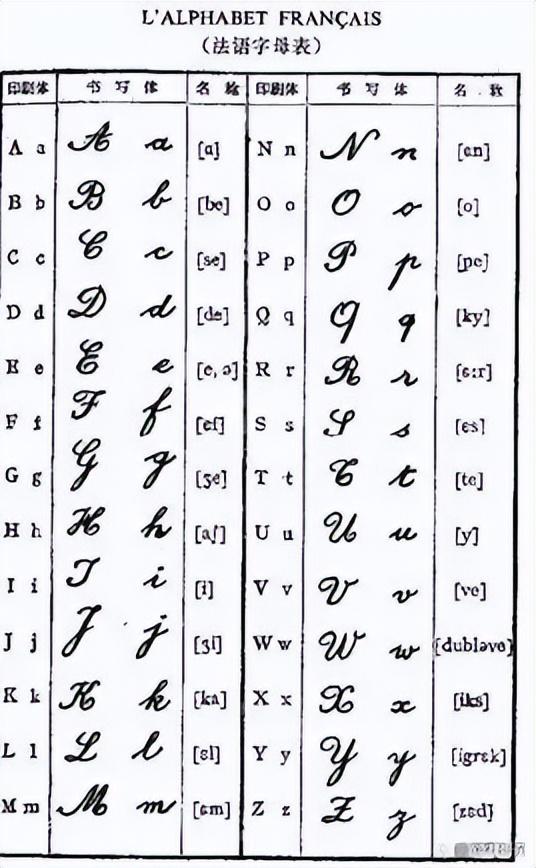 L'ALPHABET FRANÇAIS
(法语字母表)
印刷体 书写体 名称 印刷体 书写体 名称
A a A a [ɑ] N n N n [ɛn]
B b B b [be] O o O o [o]
C c C c [se] P p P p [pe]
D d D d [de] Q q Q q [ky]
E e E e [e, ə] R r R r [ɛ:r]
F f F f [ɛf] S s S s [ɛs]
G g G g [ʒe] T t T t [te]
H h H h [aʃ] U u U u [y]
I i I i [i] V v V v [ve]
J j J j [ʒi] W w W w [dubləve]
K k K k [kɑ] X x X x [iks]
L l L l [ɛl] Y y Y y [igrɛk]
M m M m [ɛm] Z z Z z [zɛd]